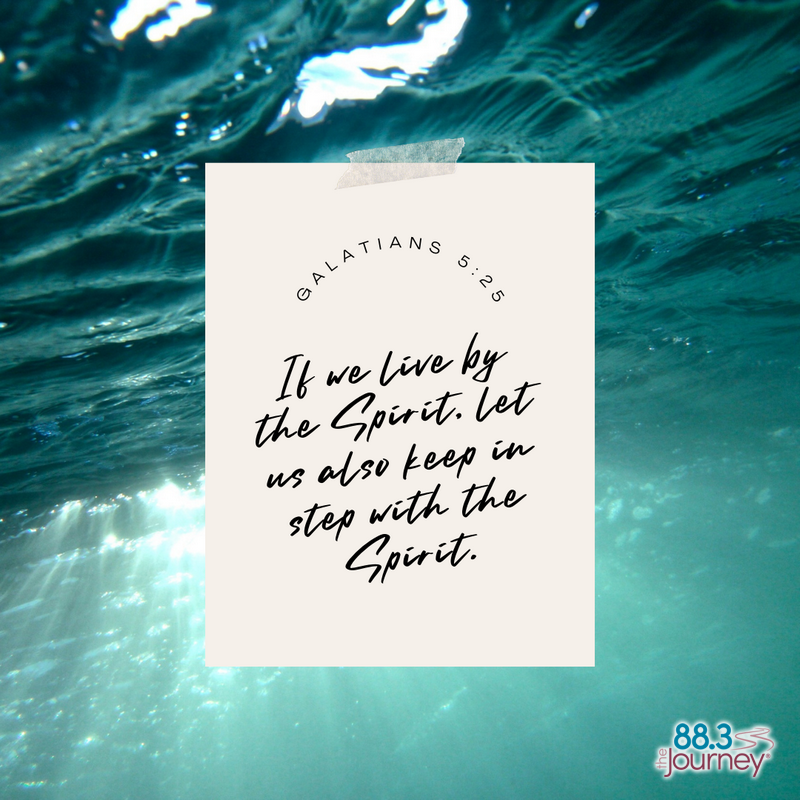 GALATIANS 5:25
If we live by
the Spirit, let
us also keep in
step with the
Spirit.
88.3
the Journey®